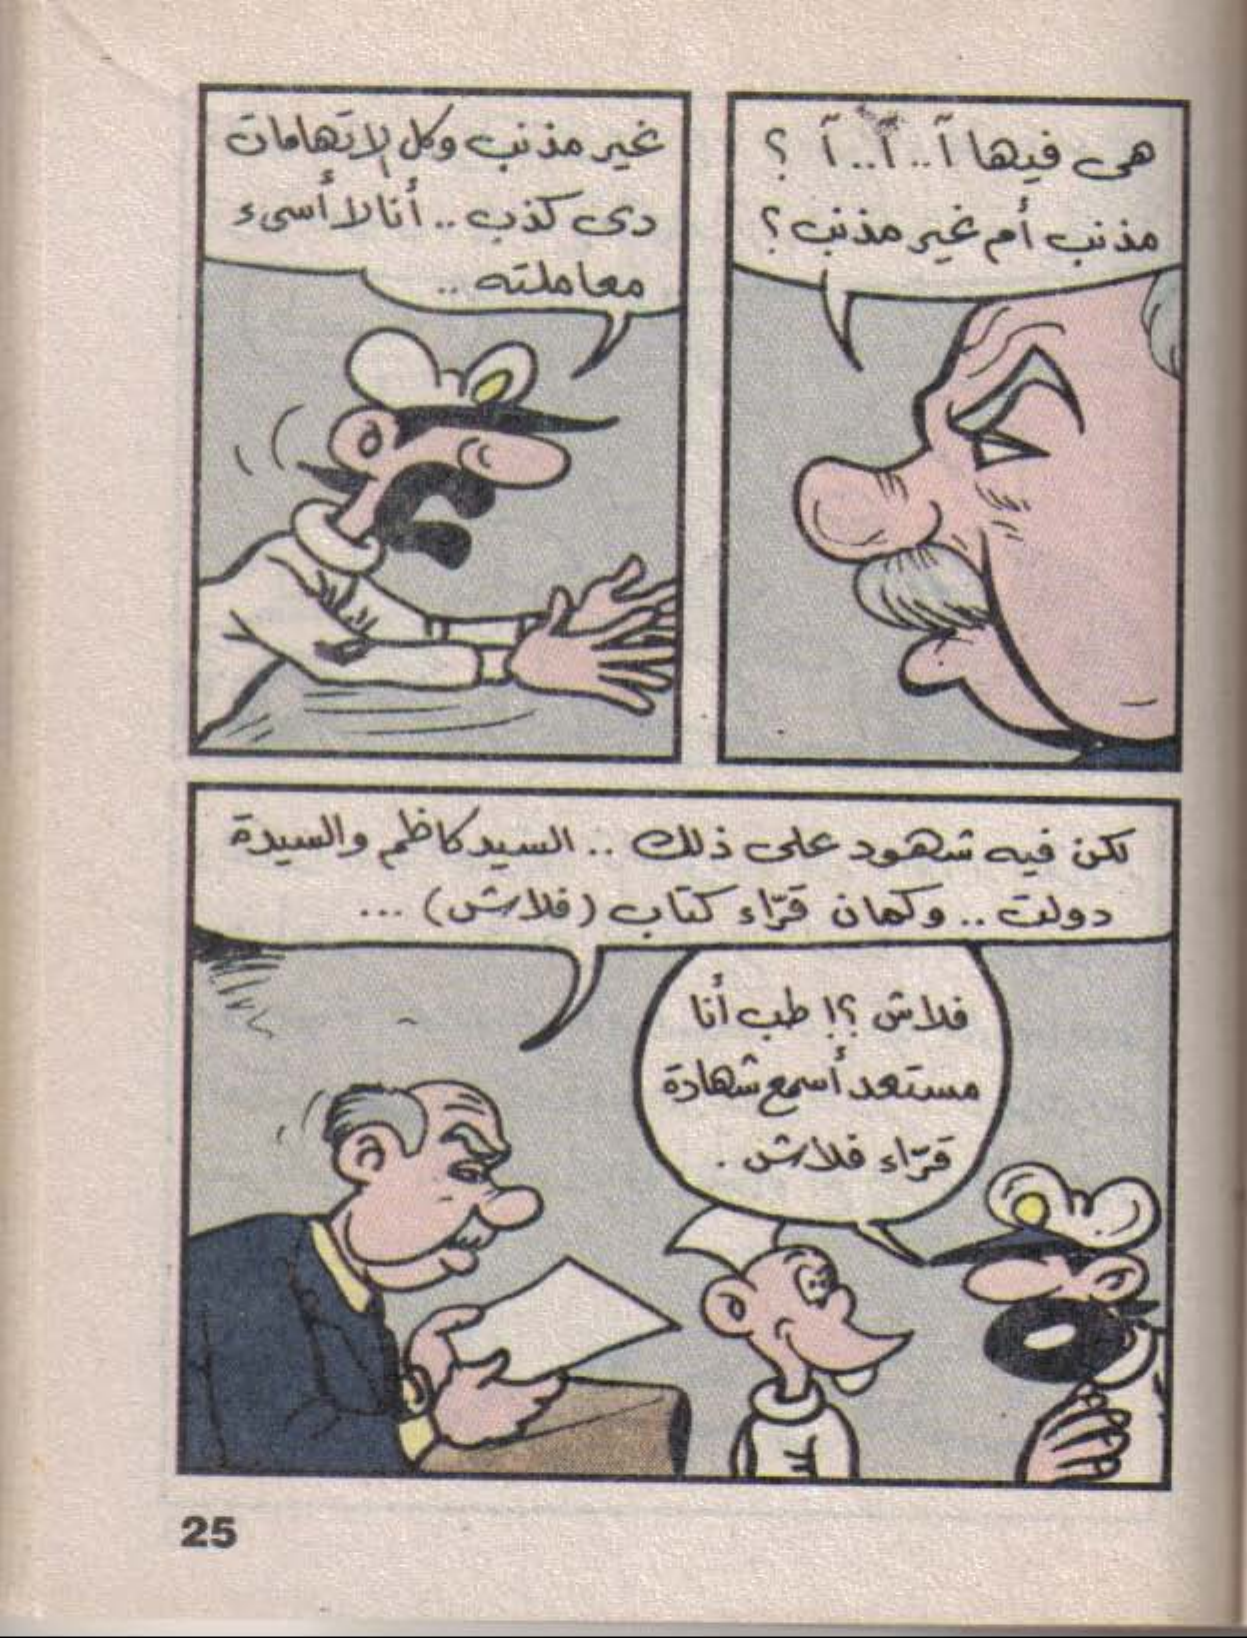 هى فيها آ..آ..آ ؟
مذنب أم غير مذنب؟
غير مذنب وكل الاتهامات
دى كذب .. أنا لا أسىء
معاملته ..
لكن فيه شهود على ذلك .. السيد كاظم والسيدة
دولت .. وكمان قرّاء كتاب (فلاش) ...
فلاش ؟! طب أنا
مستعد أسمع شهادة
قرّاء فلاش .
25